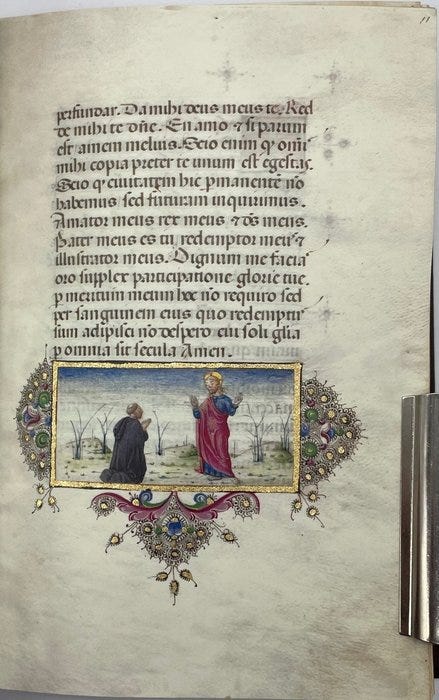 11
perfundar. Da mihi deus meus te. Red
de mihi te dñe. En amo ⁊ si parum
est amem melius. Scio enim qͥ omͥs
mihi copia preter te unum est egestas.
Scio qͥ ciuitatem hic pmanentē nō
habemus sed futuram inquirimus.
Amator meus rex meus ⁊ dͤs meus.
Pater meus es tu redemptor meus ⁊
illustrator meus. Dignum me facia
oro supplex participatione glorie tue.
p meritum meum hoc nō requiro sed
per sanguinem eius quo redemptͥ
sum adipisci nō despero cui soli gl̄ia
p omnia sit secula Amen.